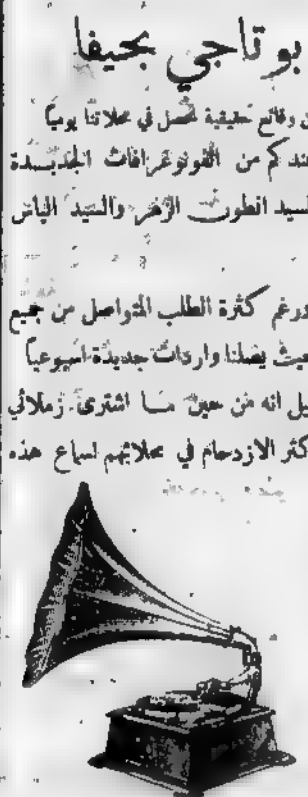 بوتاجي بحيفا
وقائع حقيقية تحصل في محلاتنا يومياً
عندكم من الفونوغرافات الجديدة
السيد انطون الزهر والسيد الياس
ورغم كثرة الطلب المتواصل من جميع
حيث يصلنا واردات جديدة اسبوعياً
قيل انه من حين ما اشترى زملائي
كثر الازدحام في محلاتهم لسماع هذه